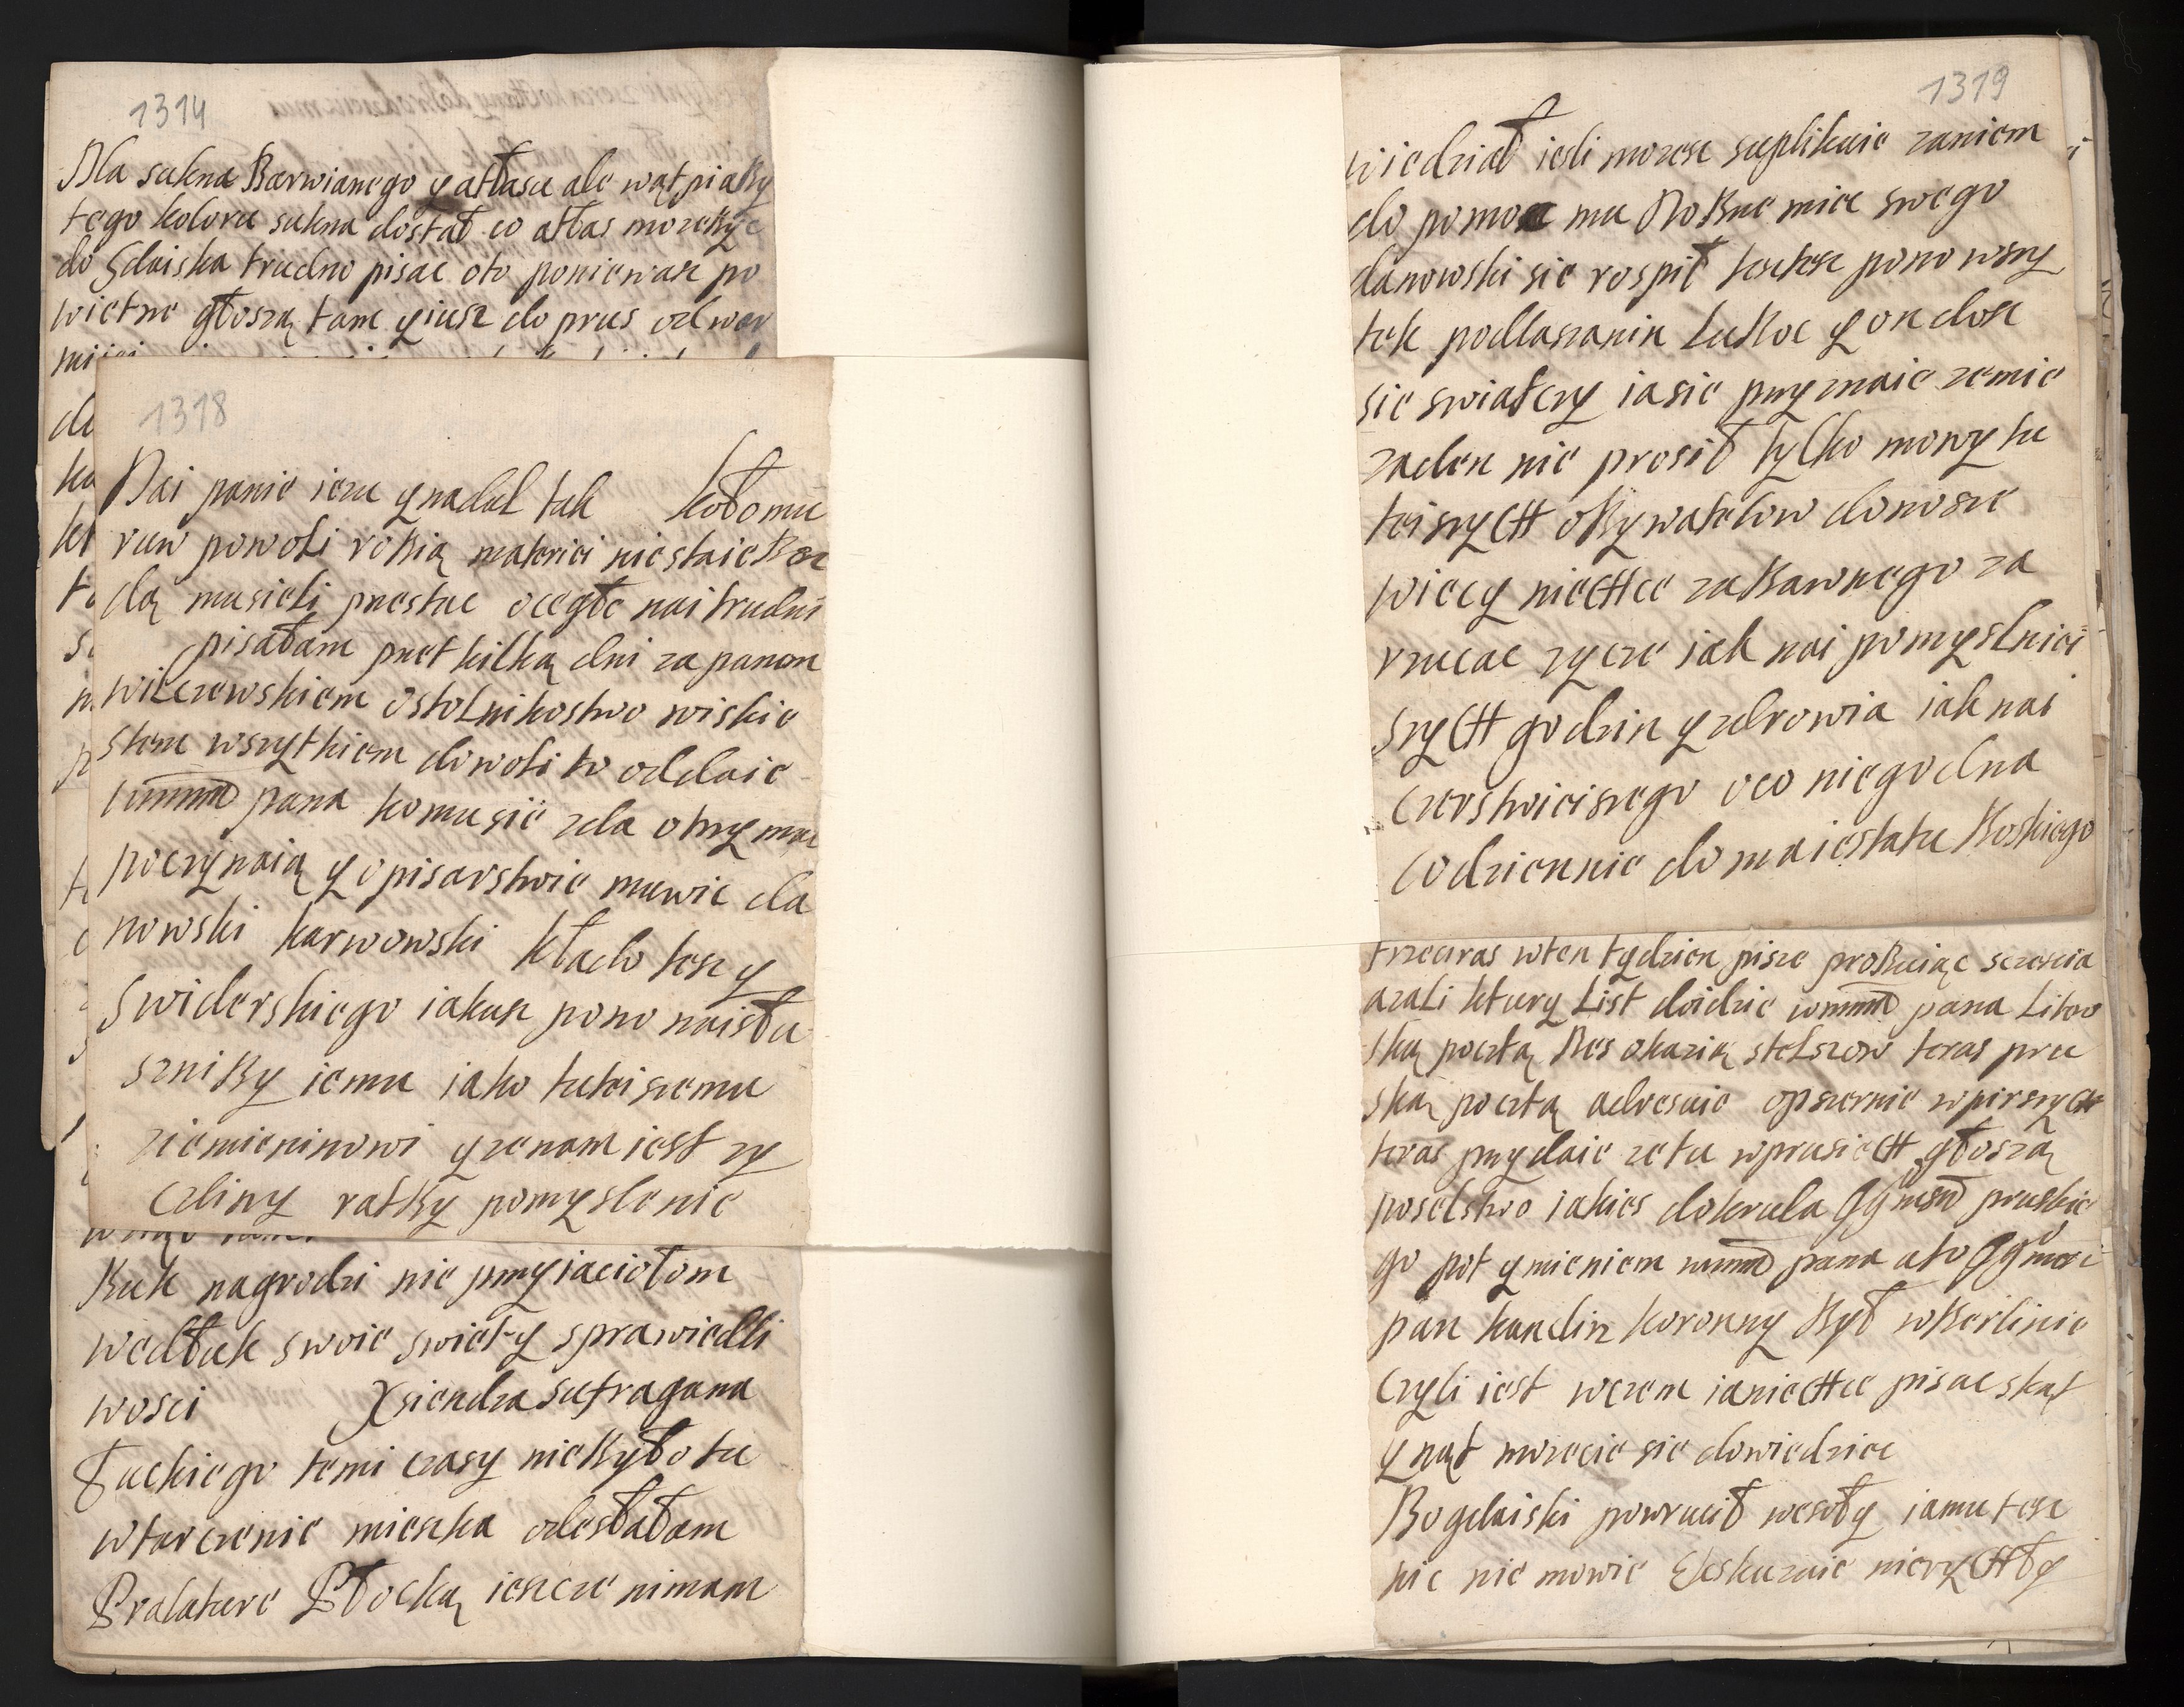 1314
Dla sukna Barwianego y atłasu ale wątpiaBy
tego koloru sukna dostał co atłas mozeByc
do Gdaiska trudno pisac oto poniewasz po
wietrne głoszą tam y iusz do prus od war
1318
Dai panie iezu y nadal tak kołomu
ruw powoli roBią materiei niestaie Bez
dą musieli przestac o cegłe nai trudni
pisałam przet kilką dni za panem
wilczewskiem o stolnikostwo wiskie
stem wszytkiem dowoli to oddaie
wmmd pana komusie zda otrzymac
poczynaią y o pisarstwie muwic da
nowski karwowski kłado tesz y
Swiderskiego iakusz pono naisłu
szniBy iemu iako tuteiszemu
ziemieninowi y zenam iest zy
czliny ratBy pomyslenie
Buk nagrodzi nie przyiaciołom
wedłuk swoie swięty sprawiedli
wosci Xsiendza sufragana
Łuckiego temi czasy nieByło tu
wtarczenie mieszka odesłałam
Pralature Płocką ieszcze nimam
1319
wiedział iesli mozesz suplikuie zaniem
do pomosz mu DoBne miee swego
danowski sie rospił tentesz pono wszy
tek podlaszanin LuBoc y on dosz
sie swiatczy ia sie przyznaie zemie
zaden nie prosił tylko mowy tu
teiszycH oBywatelow donosze
wiecy niecHce zaBawnego za
rzucac zycze iak nai pomyslniei
szycH godzin y zdrowia iak nai
czerstwieiszego oco niegodna
codziennie do maiestatu Boskiego
trzeciras wten tydzien pisze proBuiąc szczescia
azali ktury List doidzie wmmd pana Litew
ską pocztą Bes okazią stelszow teras pru
ską pocztą adresuie opszernie wpirszycH
teras przydaie ze tu wprusiecH głoszą
poselstwo iakies dokrula Jgmsd pruskie
go pot ymieniem wmmd pana ato Jgmsci
pan kanclirz koronny Był wBerlinie
czyli iest wczem ia niecHce pisac skąt
ynąt mozecie sie dowiedziec
Bogdaiski powrucił wesoły iamu tesz
nic nie mowie Ekskuzuie nierycHły